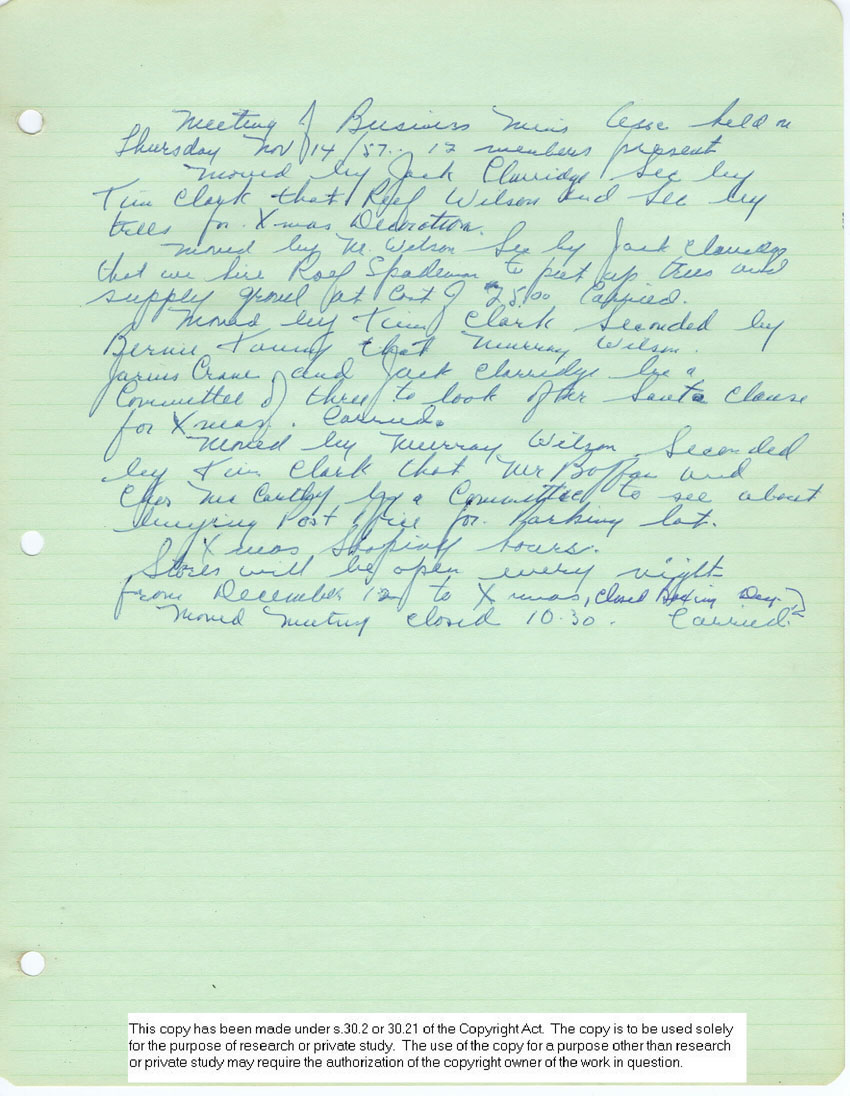 Meeting of Business Mens Assc held on
Thursday Nov 14/57. 12 members present
Moved by Jack Clarridge Sec by
Tim Clark that Wilson and See by
trees for Xmas Decoration.
Moved by M. Wilson Sec by Jack Clarridge
that we hire to put up trees and
supply gravel at Cost of $25.00 Carried.
Moved by Tim Clark Seconded by
Bernie Young that Murray Wilson.
Jarvis Crane and Jack Clarridge be a
Committee of three to look after Santa Clause
for Xmas. Carried.
Moved by Murray Wilson Seconded
by Tim Clark that Mr and
Chas McCarthy be a Committee to see about
buying Post Office for Parking lot.
Xmas Shoping hours.
Stores will be open every night
from December 12 to Xmas, Closed Boxing Day.
Moved Meeting closed 10.30. Carried.
This copy has been made under s.30.2 or 30.21 of the Copyright Act. The copy is to be used solely
for the purpose of research or private study. The use of the copy for a purpose other than research
or private study may require the authorization of the copyright owner of the work in question.